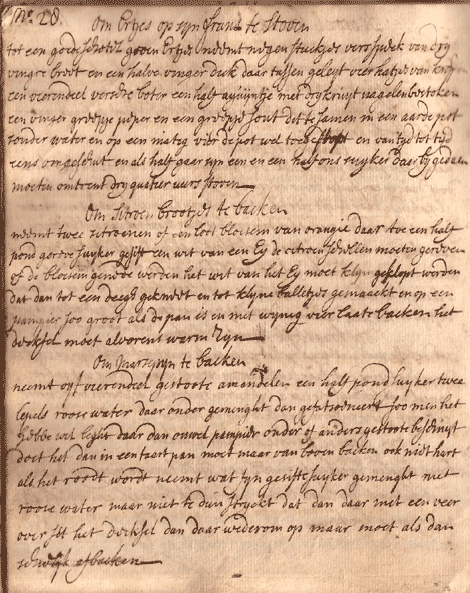 No. 28.
Om Ertjes op syn frans te stoven
tot een goede schotel groen Ertjes neemt negen stuckjes vers spek van dry
vinger breet en een halve vinger dick daar tussen geleyt vier hatjes van
een vierendeel versche boter een half ajuijntje met dry kruyt nagelen bestoken
een vinger greepje peper en een greepje sout dit te samen in een aarde pot
sonder water en op een matig vier de pot wel toe gestopt en van tyd tot tyd
eens omgeschut en als half gaar syn een en een half ons suyker daar by gedaen
moeten omtrent dry quatier uurs stoven
Om Sitroen brootjes te backen
neemt twee sitroenen of een loot bloesem van orangie daar toe een half
pond groove suyker gesift een wit van een Ey de citroen schellen moeten
of de bloesem genode werden het wit van het Ey moet kleyn geklopt worden
dat dan tot een deegh gekneet en tot klyne balletjes gemaackt en op een
pampier soo groot als de pan is en met wynig vier laate backen het
decksel moet alvorens werm zyn
Om marsepyn te backen
neemt vierendeel gestoote amandelen een half pond suyker twee
lepels roose water daar onder gemenght dan soo men het
hebbe wil leght daar dan ouwel pampier onder of anders gestoote beschuyt
doet het dan in een taert pan moet maar van boven backen ook niet hart
als het roodt wordt neemt wat fyn gesifte suyker gemenght met
roose water maar niet te dun stryckt dat dan daar met een veer
over set het decksel dan daar wederom op maar moet als dan
afbacken